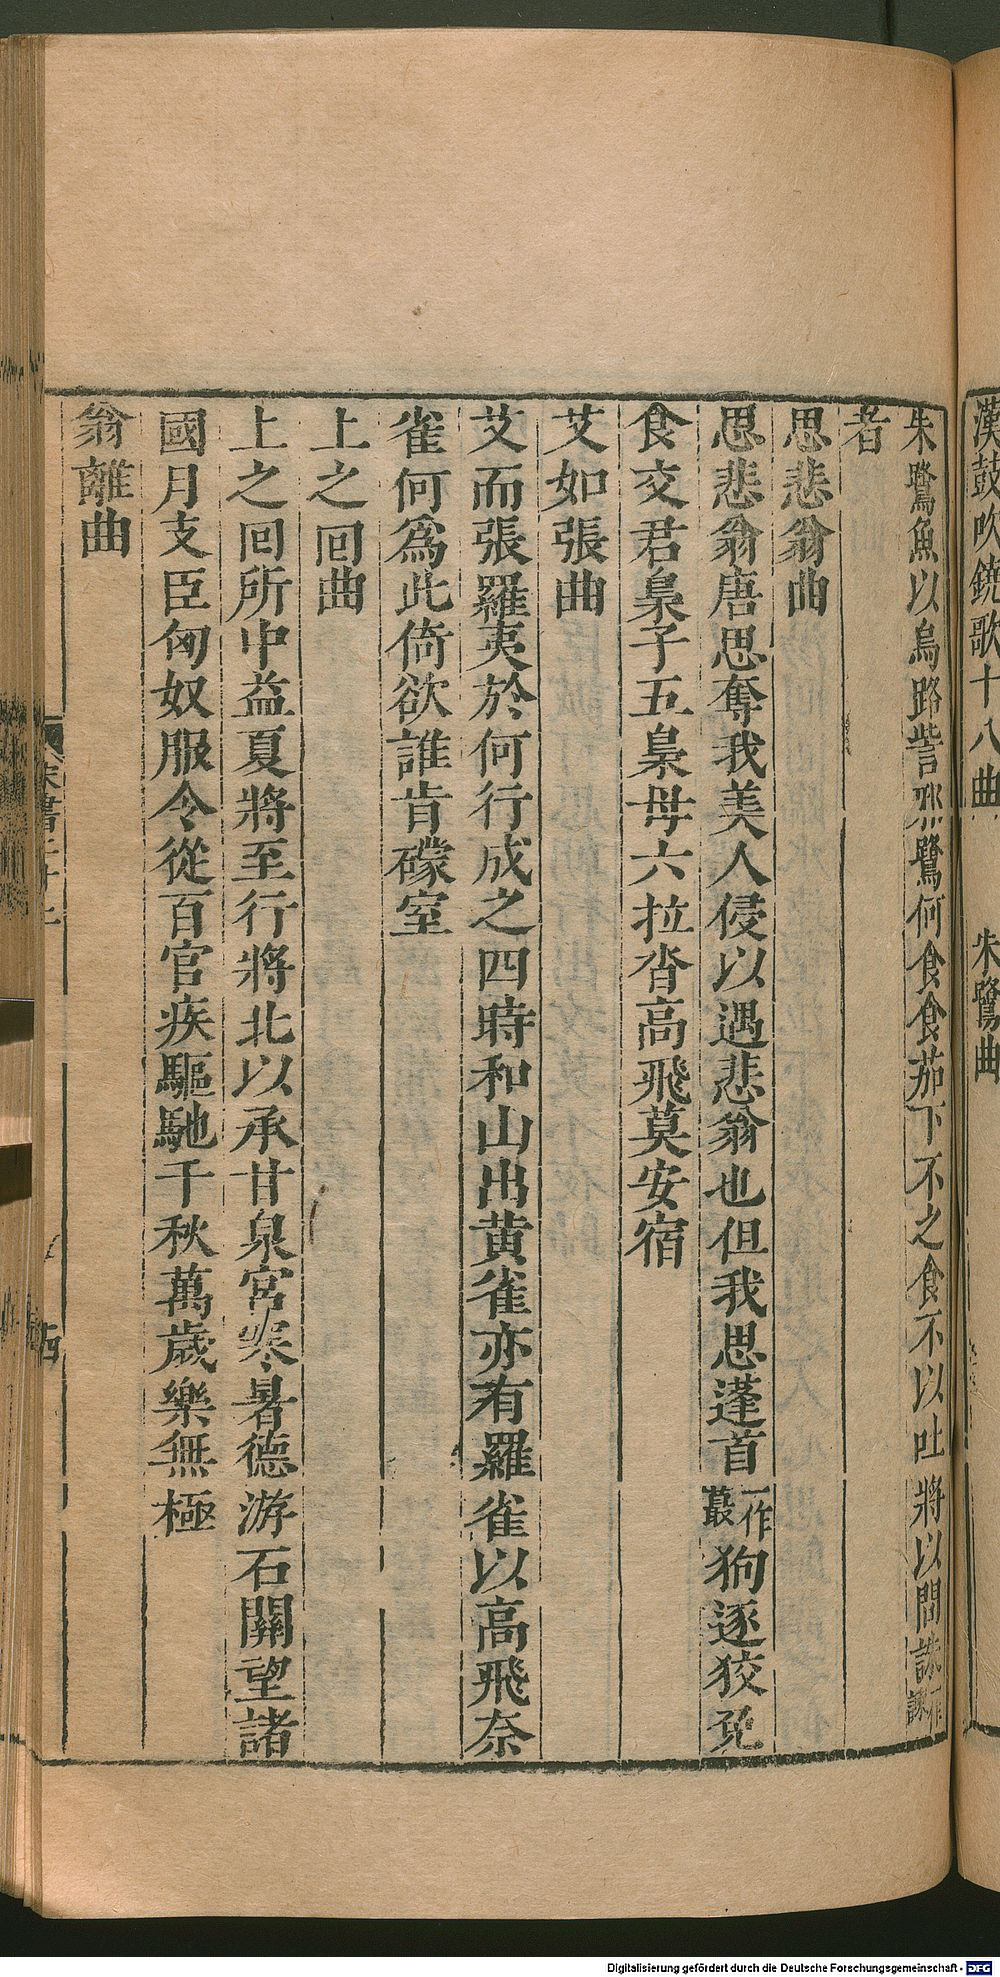 漢鼓吹鐃歌十八曲　朱鷺曲
朱鷺魚以烏路訾邪鷺何食食茄下不之食不以吐將以問誅一作諫
者
思悲翁曲
思悲翁唐思奪我美人侵以遇悲翁也但我思蓬首一作蕞狗逐狡兔
食交君梟子五梟母六拉沓高飛莫安宿
艾如張曲
艾而張羅夷於何行成之四時和山出黃雀亦有羅雀以高飛奈
雀何爲此倚欲誰肯礞室
上之回曲
上之回所中益夏將至行將北以承甘泉宮寒暑德游石關望諸
國月支臣匈奴服令從百官疾驅馳千秋萬歲樂無極
翁離曲
Digitalisierung gefördert durch die Deutsche Forschungsgemeinschaft - DFG